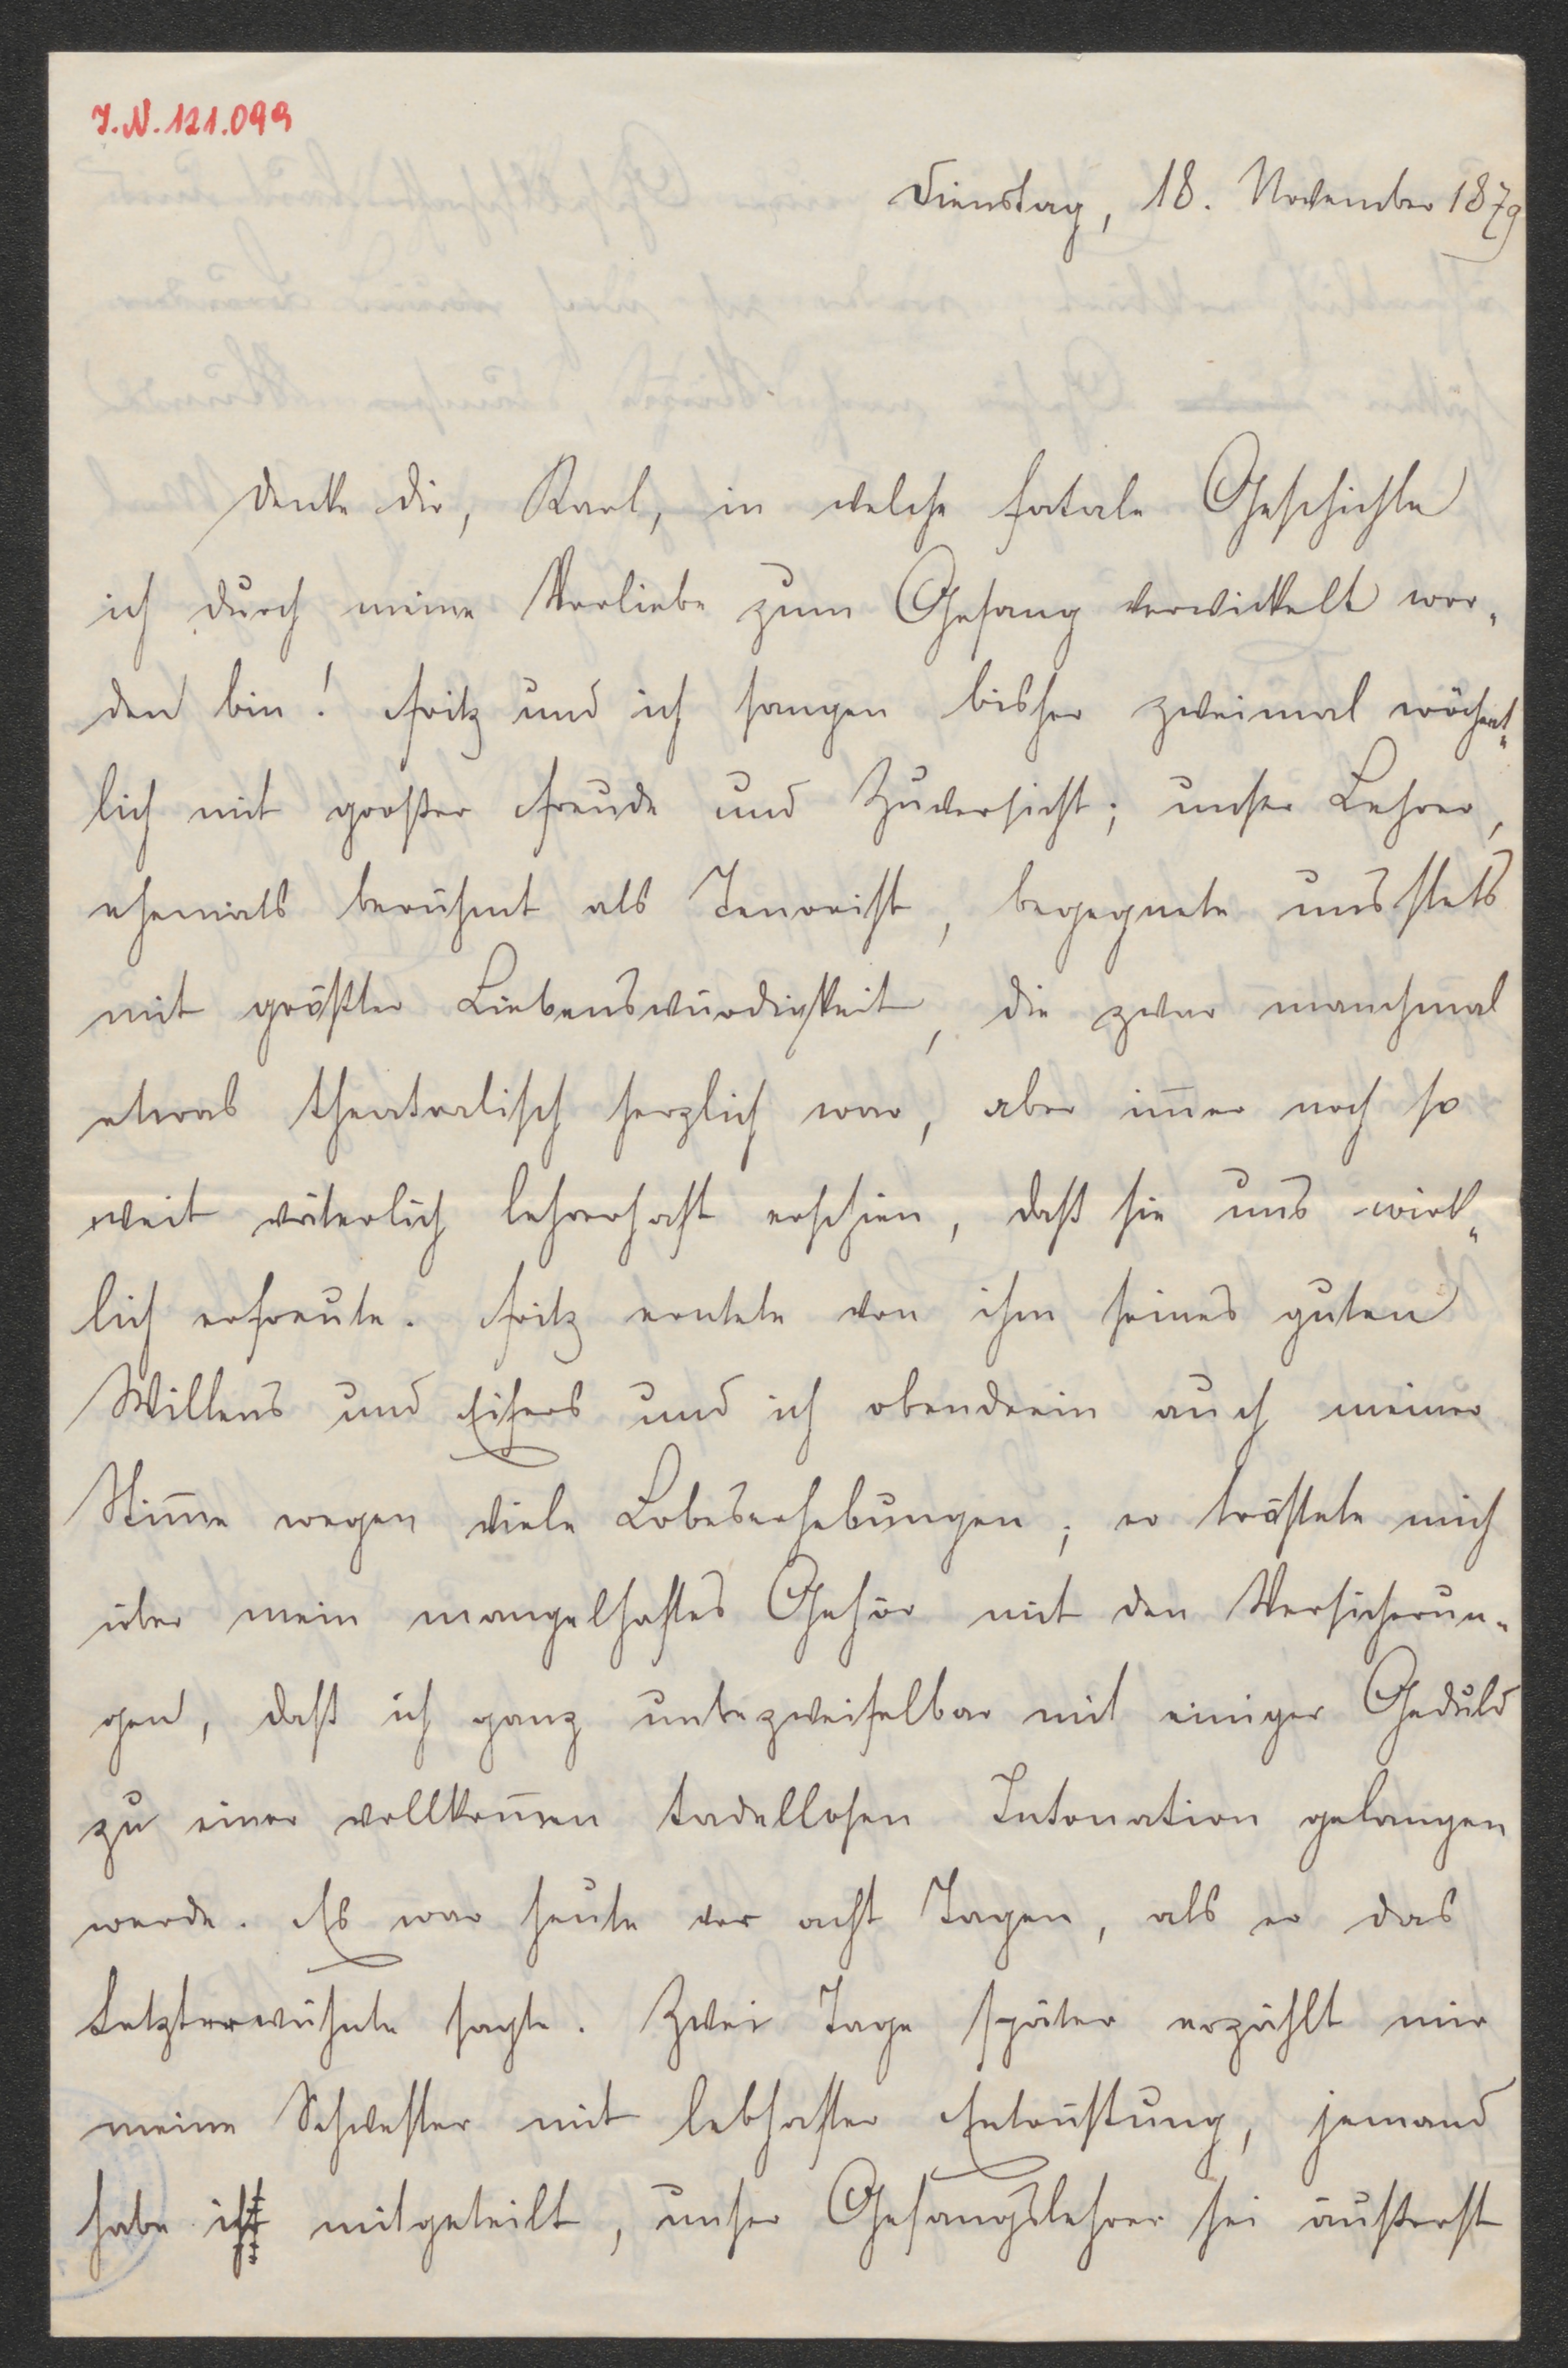 I.N. 121.099
Dienstag, 18. November 1879
Denke dir, Karl, in welche fatale Geschichte
ich durch meine Vorliebe zum Gesang verwickelt wor-
den bin! Fritz und ich sangen bisher zweimal wöchent-
lich mit großer Freude und Zuversicht; unser Lehrer,
ehemals berühmt als Tenorist, begegnete uns stets
mit größter Liebenswürdigkeit, die zwar manchmal
etwas theatralisch herzlich war, aber im̄er noch so
weit väterlich lehrerhaft erschien, daß sie uns wirk-
lich erfreute. Fritz erntete von ihm seines guten
Willens und Eifers und ich obendrein auch meiner
Stim̄e wegen viele Lobeserhebungen; er tröstete mich
über mein mangelhaftes Gehör mit den Versicherun-
gen, daß ich ganz unbezweifelbar mit einiger Geduld
zu einer vollkom̄en tadellosen Intonation gelangen
werde. Es war heute vor acht Tagen, als er das
Letzterwähnte sagte. Zwei Tage später erzählt mir
meine Schwester mit lebhafter Entrüstung, jemand
habe ihr mitgeteilt, unser Gesangslehrer sei äußerst